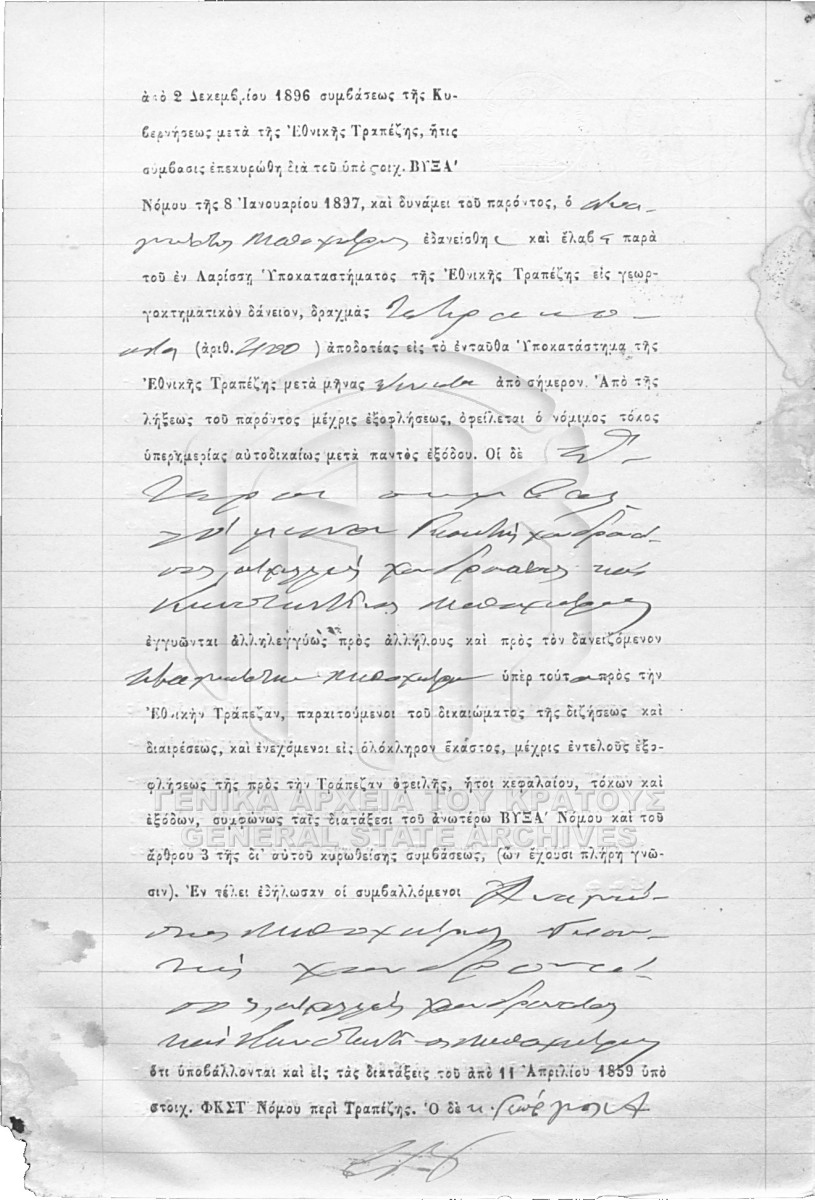 ἀπὸ 2 Δεκεμβρίου 1896 συμβάσεως τῆς Κυ-
βερνήσεως μετὰ τῆς Ἐθνικῆς Τραπέζης, ἥτις
σύμβασις ἐπεκυρώθη διὰ τοῦ ὑπὸ στοιχ. ΒΥΞΑ'
Νόμου τῆς 8 Ἰανουαρίου 1897, καὶ δυνάμει τοῦ παρόντος, ὁ Ανα-
γνώστης ἐδανείσθη καὶ ἔλαβε παρὰ
τοῦ ἐν Λαρίσσῃ Ὑποκαταστήματος τῆς Ἐθνικῆς Τραπέζης εἰς γεωρ-
γοκτηματικὸν δάνειον, δραχμὰς Τετρακο-
σίας (ἀριθ. 400 ) ἀποδοτέας εἰς τὸ ἐνταῦθα Ὑποκατάστημα τῆς
Ἐθνικῆς Τραπέζης μετὰ μῆνας ἐννέα ἀπὸ σήμερον. Ἀπὸ τῆς
λήξεως τοῦ παρόντος μέχρις ἐξοφλήσεως, ὀφείλεται ὁ νόμιμος τόκος
ὑπερημερίας αὐτοδικαίως μετὰ παντὸς ἐξόδου. Οἱ δὲ ἕ-
τεροι συμβαλ-
λόμενοι
καὶ
Κωνσταντῖνος
ἐγγυῶνται ἀλληλεγγύως πρὸς ἀλλήλους καὶ πρὸς τὸν δανειζόμενον
Αναγνώστην ὑπὲρ τούτου πρὸς τὴν
Ἐθνικὴν Τράπεζαν, παραιτούμενοι τοῦ δικαιώματος τῆς διζήσεως καὶ
διαιρέσεως, καὶ ἐνεχόμενοι εἰς ὁλόκληρον ἕκαστος, μέχρις ἐντελοῦς ἐξο-
φλήσεως τῆς πρὸς τὴν Τράπεζαν ὀφειλῆς, ἤτοι κεφαλαίου, τόκων καὶ
ΓΕΝΙΚΑ ΑΡΧΕΙΑ ΤΟΥ ΚΡΑΤΟΥΣ
ἐξόδων, συμφώνως ταῖς διατάξεσι τοῦ ἀνωτέρω ΒΥΞΑ' Νόμου καὶ τοῦ
GENERAL STATE ARCHIVES
ἄρθρου 3 τῆς δι' αὐτοῦ κυρωθείσης συμβάσεως, (ὧν ἔχουσι πλήρη γνῶ-
σιν). Ἐν τέλει ἐδήλωσαν οἱ συμβαλλόμενοι Αναγνώ-
στης
καὶ Κωνσταντῖνος
ὅτι ὑποβάλλονται καὶ εἰς τὰς διατάξεις τοῦ ἀπὸ 11 Ἀπριλίου 1859 ὑπὸ
στοιχ. ΦΚΣΤ' Νόμου περὶ Τραπέζης. Ὁ δὲ κ. Γεώργιος Α